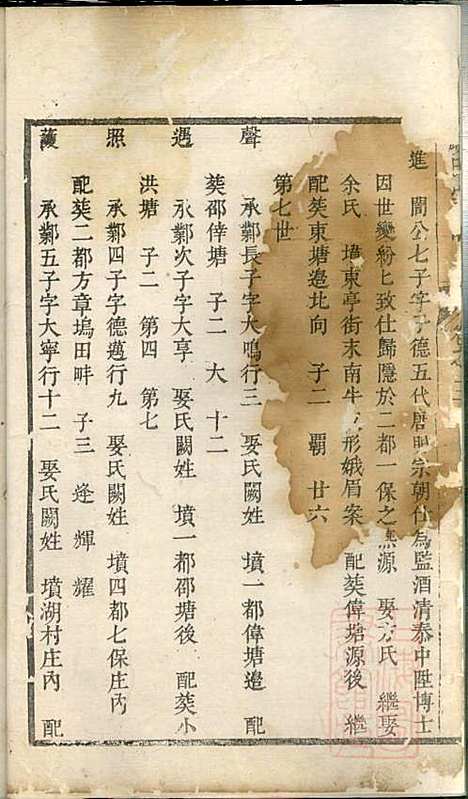 進 閏公七子字子德五代唐明宗朝仕為監酒清泰中陞博士
因世變紛匕致仕歸隱於二都一保之無源 娶方氏 繼娶
余氏 墳東亭街末南牛形娥眉案 配𦵏偉塘源後 繼
配𦵏東塘邉北向 子二 覇 廿六
第七世
聲 承鄴長子字大鳴行三 娶氏闕姓 墳一都偉塘邉 配
𦵏邵倖塘 子二 大 十二
遇 承鄴次子字大享 娶氏闕姓 墳一都邵塘後 配𦵏小
洪塘 子二 第四 第七
照 承鄴四子字德邁行九 娶氏闕姓 墳四都七保庄內
配𦵏二都方章塢田畔 子三 逄 輝 耀
護 承鄴五子字大寧行十二 娶氏闕姓 墳湖村庄內 配